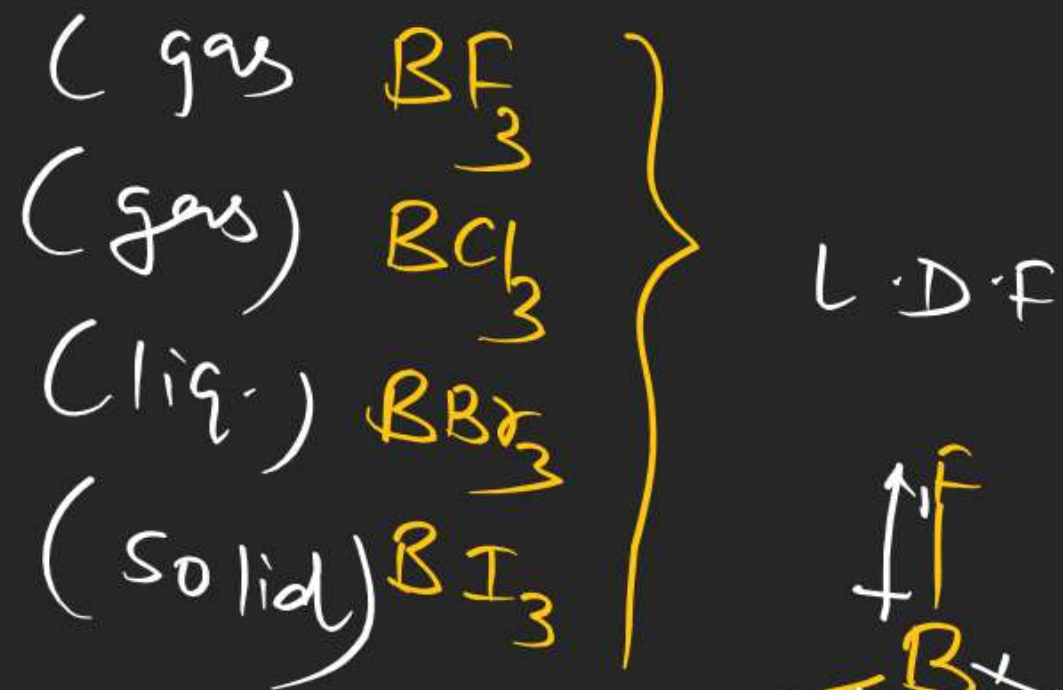 ( gas BF3
(gas) BCl3
L.D.F
(liq.) BBr3
(solid) BI3
F
B